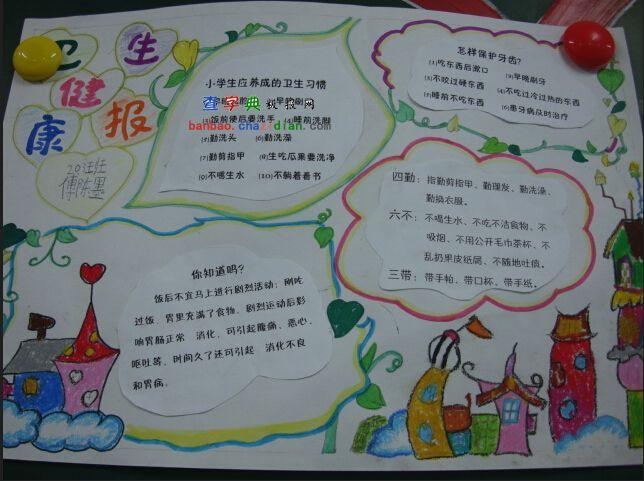 卫生
健
康报
傅陈墨
小学生应养成的卫生习惯
查字典教案网
banbao.chazidian.com
(3)饭前便后要洗手 (4)睡前洗脚
(5)勤洗头 (6)勤洗澡
(7)勤剪指甲 (8)生吃瓜果要洗净
(9)不喝生水 (10)不躺着看书
怎样保护牙齿?
(1)吃东西后漱口 (2)早晚刷牙
(3)不咬过硬东西 (4)不吃过冷过热的东西
(5)睡前不吃东西 (6)患牙病及时治疗
四勤：指勤剪指甲、勤理发、勤洗澡、
勤换衣服。
六不：不喝生水、不吃不洁食物、不
吸烟、不用公用毛巾茶杯、不
乱扔果皮纸屑、不随地吐痰。
三带：带手帕、带口杯、带手纸。
你知道吗?
饭后不宜马上进行剧烈活动：刚吃
过饭，胃里充满了食物，剧烈运动后影
响胃肠正常 消化，可引起腹痛、恶心、
呕吐等，时间久了还可引起 消化不良
和胃病。